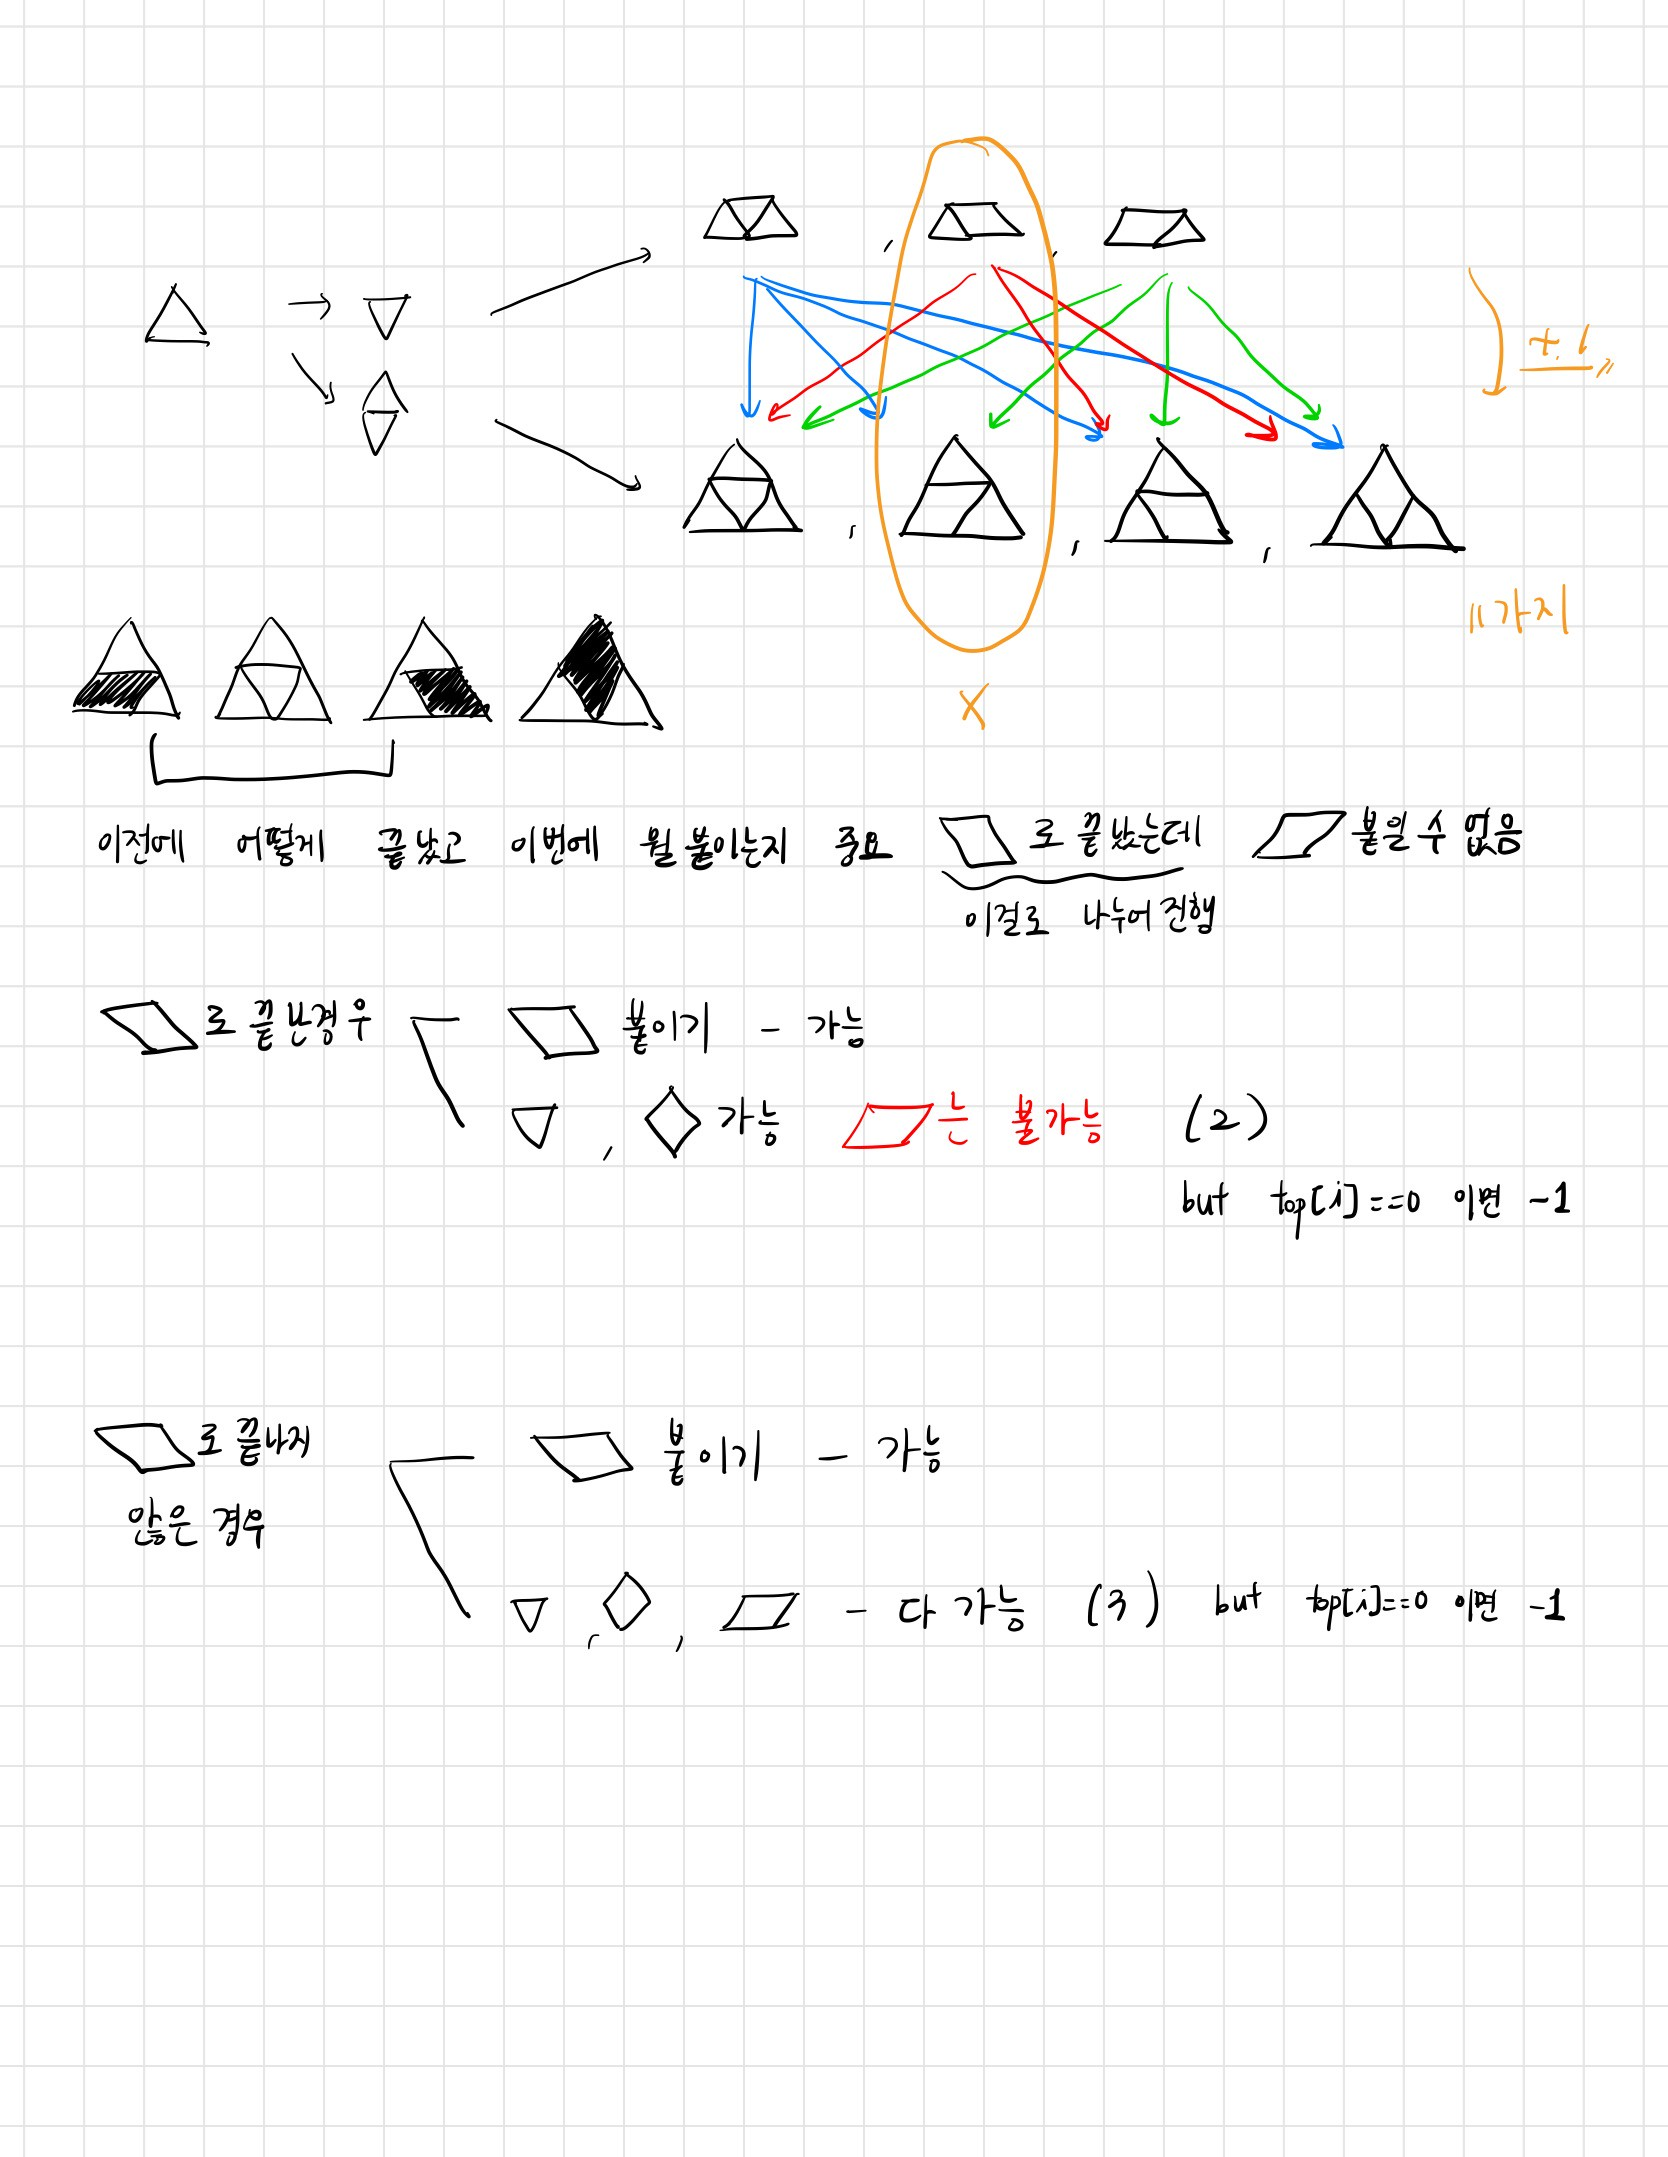 +1
11가지
X
이전에 어떻게 끝났고 이번에 뭘 붙이는지 중요 로 끝났는데 붙일 수 없음
이걸로 나누어 진행
로 끝난경우 붙이기 - 가능
, 가능 는 불가능 (2)
but top[i]==0 이면 -1
로 끝나지 붙이기 - 가능
않은 경우
, , - 다 가능 (3) but top[i]==0 이면 -1